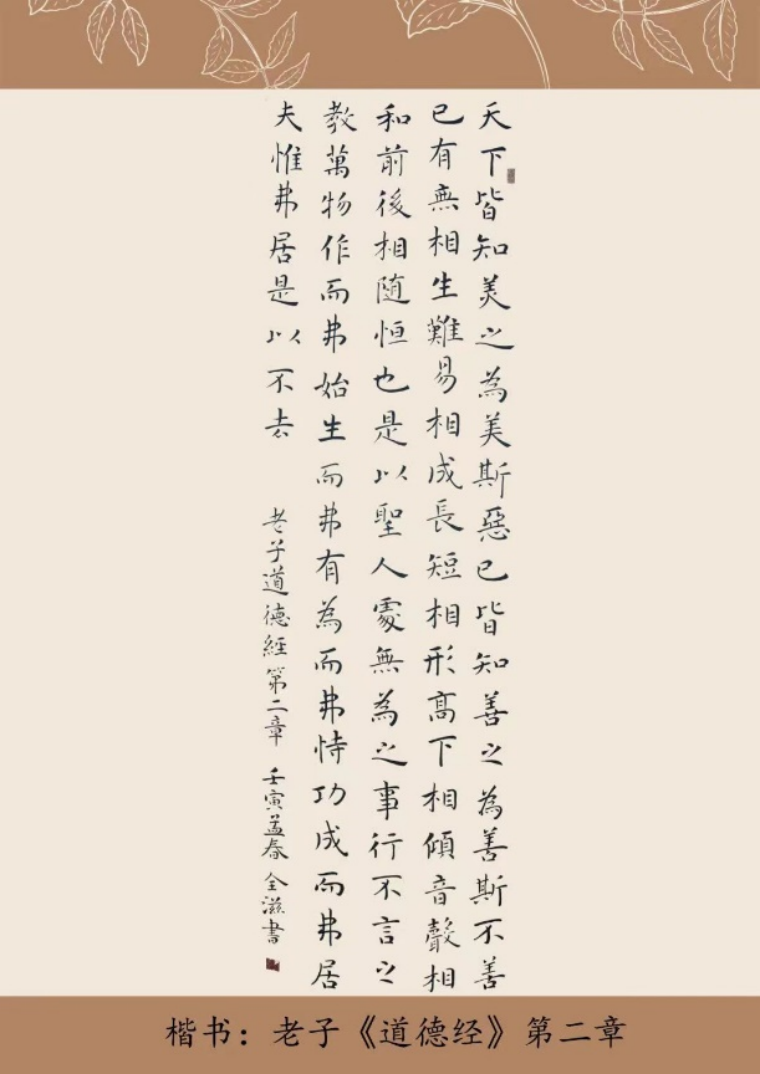 天下皆知美之為美斯惡已皆知善之為善斯不善
已有無相生難易相成長短相形高下相傾音聲相
和前後相随恒也是以聖人處無為之事行不言之
教萬物作而弗始生而弗有為而弗恃功成而弗居
夫惟弗居是以不去
老子道德經第二章 壬寅孟春 全滋書
楷书：老子《道德经》第二章